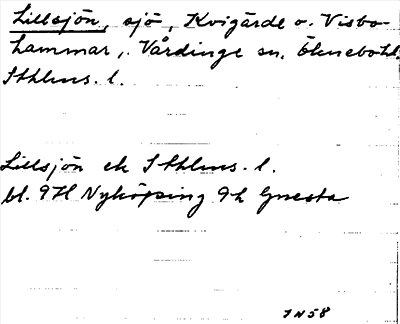 Lillsjön, sjö, Kvigärde o. Visbo-
hammar, Vårdinge sn, Öknebo hd.
Sthlms. l.
Lillsjön ek Sthlms. l.
bl. 9H Nyköping 9h Gnesta
JN58